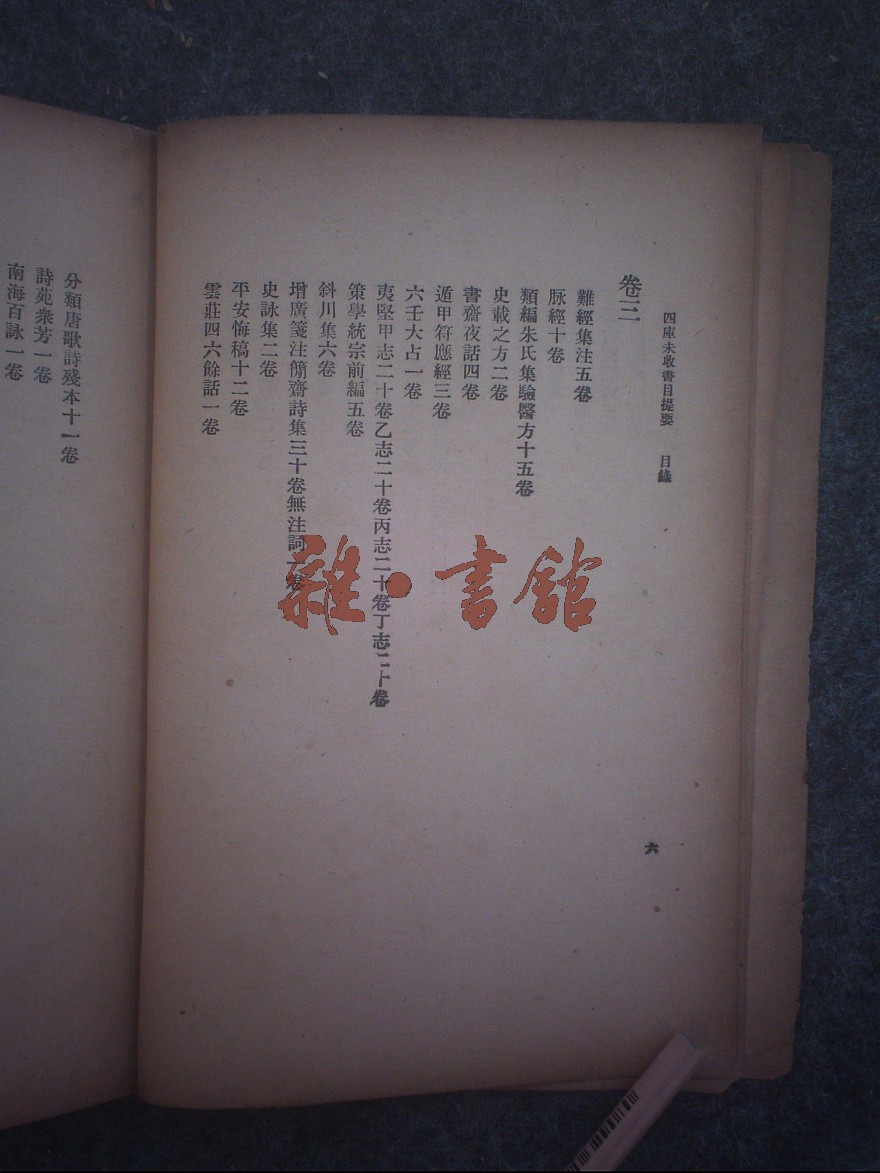 四庫未收書目提要　目錄
卷三
難經集注五卷
脉經十卷
類編朱氏集驗醫方十五卷
史載之方二卷
書齋夜話四卷
遁甲符應經三卷
六壬大占一卷
夷堅甲志二十卷乙志二十卷丙志二十卷丁志二十卷
策學統宗前編五卷
斜川集六卷
增廣箋注簡齋詩集三十卷無注詞一卷
史詠集二卷
平安悔稿十二卷
雲莊四六餘話一卷
六
分類唐歌詩殘本十一卷
詩苑衆芳一卷
南海百詠一卷
雜·書館